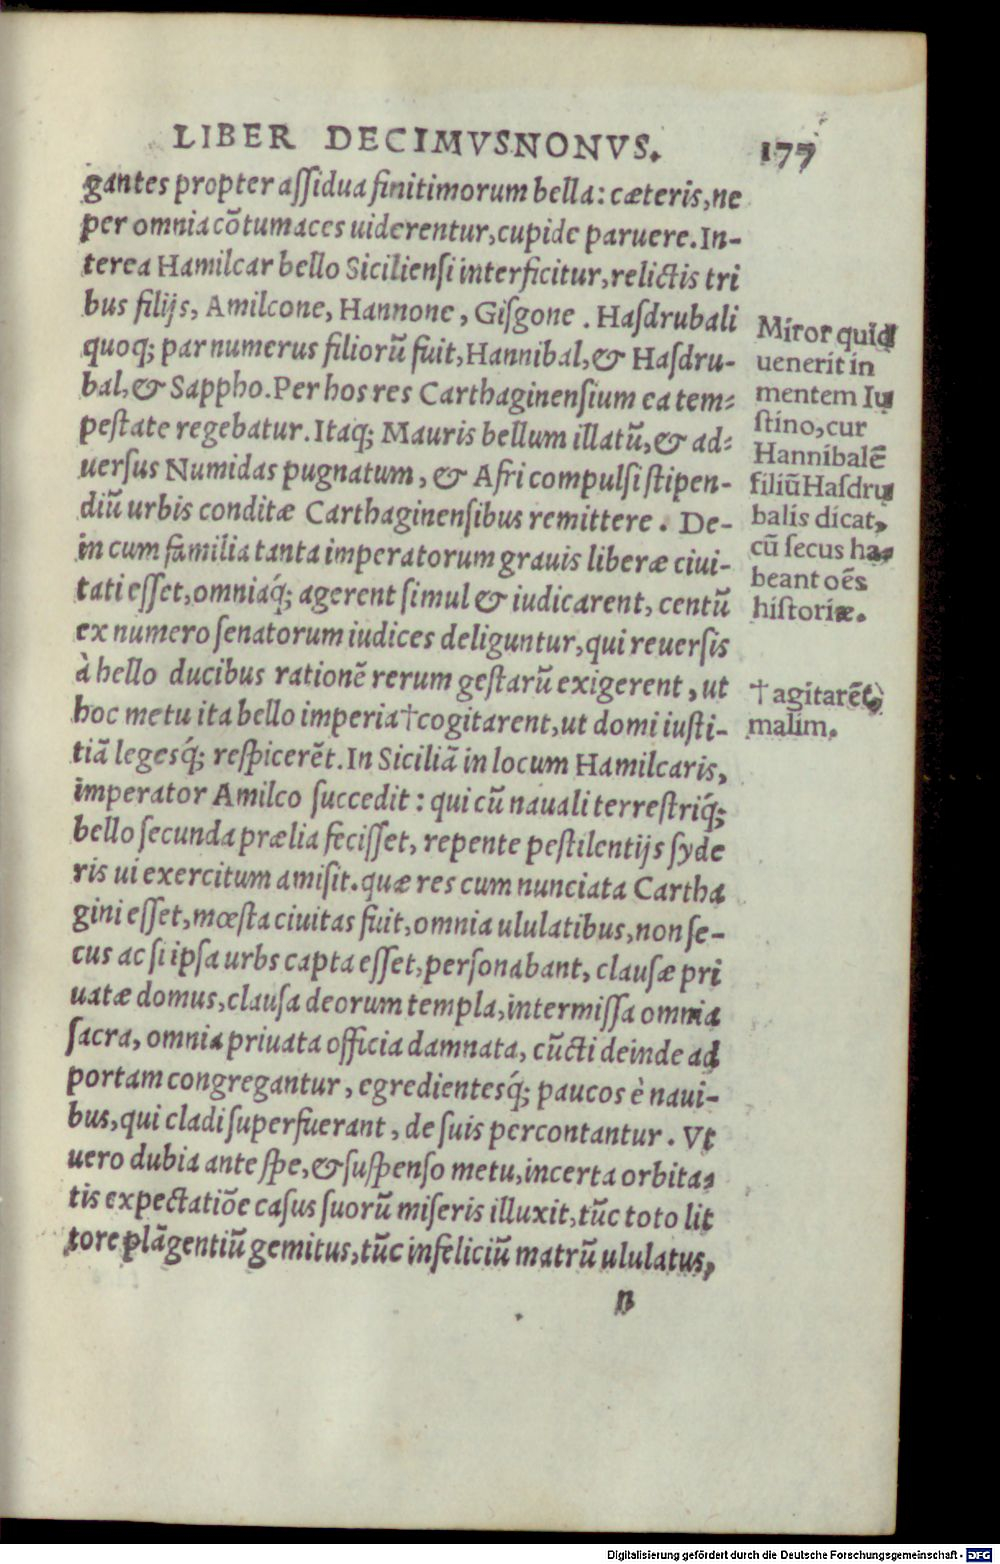 LIBER DECIMVSNONVS. 177
gantes propter aſſidua finitimorum bella: cæteris, ne
per omnia cõtumaces uiderentur, cupide paruere. In-
terea Hamilcar bello Sicilienſi interficitur, relictis tri
bus filijs, Amilcone, Hannone, Giſgone. Haſdrubali
quoq; par numerus filiorũ fuit, Hannibal, & Haſdru-
bal, & Sappho. Per hos res Carthaginenſium ea tem-
peſtate regebatur. Itaq; Mauris bellum illatũ, & ad-
uerſus Numidas pugnatum, & Afri compulſi ſtipen-
diũ urbis conditæ Carthaginenſibus remittere. De-
in cum familia tanta imperatorum grauis liberæ ciui-
tati eſſet, omniaq́; agerent ſimul & iudicarent, centũ
ex numero ſenatorum iudices deliguntur, qui reuerſis
à bello ducibus rationẽ rerum geſtarũ exigerent, ut
hoc metu ita bello imperia†cogitarent, ut domi iuſti-
tiã legesq́; reſpicerẽt. In Siciliã in locum Hamilcaris,
imperator Amilco ſuccedit: qui cũ nauali terreſtriq́;
bello ſecunda prælia feciſſet, repente peſtilentijs ſyde
ris ui exercitum amiſit. quæ res cum nunciata Cartha
gini eſſet, mœſta ciuitas fuit, omnia ululatibus, non ſe-
cus ac ſi ipſa urbs capta eſſet, perſonabant, clauſæ pri
uatæ domus, clauſa deorum templa, intermiſſa omnia
ſacra, omnia priuata officia damnata, cũcti deinde ad
portam congregantur, egredientesq́; paucos è naui-
bus, qui cladi ſuperfuerant, de ſuis percontantur. Vt
uero dubia ante ſpe, & ſuſpenſo metu, incerta orbita-
tis expectatiõe caſus ſuorũ miſeris illuxit, tũc toto lit
tore plãgentiũ gemitus, tũc infeliciũ matrũ ululatus,
Miror quid
uenerit in
mentem Iu
ſtino, cur
Hannibalẽ
filiũ Haſdru
balis dicat,
cũ ſecus ha-
beant oẽs
hiſtoriæ.
† agitarẽt,
malim.
Digitalisierung gefördert durch die Deutsche Forschungsgemeinschaft - DFG